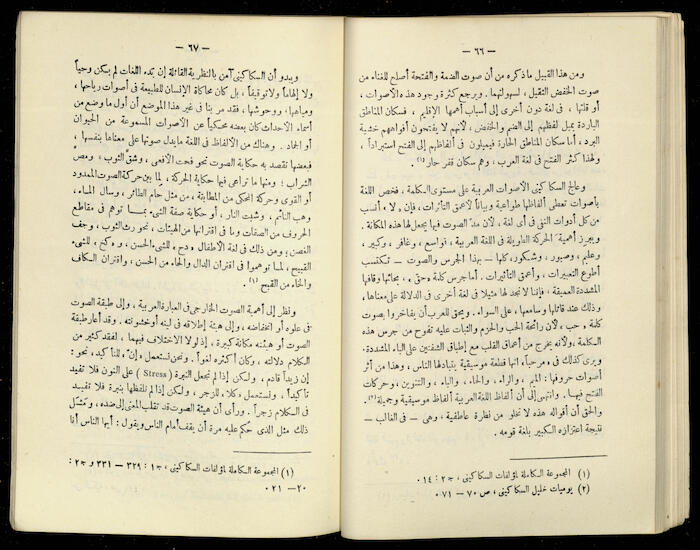 — ٦٦ —
ومن هذا القبيل ما ذكره من أن صوت الضمة والفتحة أصلح للغناء من
صوت الخفض الثقيل، لسهولتهما. ويرجع كثرة وجود هذه الأصوات،
أو قلتها، فى لغة دون أخرى إلى أسباب أهمها الإقليم، فسكان المناطق
الباردة يميل لفظهم إلى الضم والخفض، لأنهم لا يفتحون أفواههم خشية
البرد، أما سكان المناطق الحارة فيميلون فى ألفاظهم إلى الفتح استبراداً،
ولهذا كثر الفتح فى لغة العرب، وهم سكان قفر حار(١)
وعالج السكاكينى الأصوات العربية على مستوى الكلمة، فخص اللغة
بأصوات تعطى ألفاظها طواعية وبياناً لأعمق التأثرات، فإن «لا» أنسب
من كل أدوات النفى فى أى لغة، لأن مد الصوت فيها يجعل لها هذه المكانة.
ويبرز أهمية الحركة الطويلة فى اللغة العربية، فواسع، وغافر، وكبير،
وعليم، وصبور، وشكور، كلها — بهذا الجرس والصوت — تكتسب
أطوع التعبيرات، وأعمق التأثيرات. أما جرس كلمة «حق»، بحائها وقافها
المشددة العميقة، فإننا لا نجد لها مثيلا فى لغة أخرى فى الدلالة على معناها،
وذلك عند قائلها وسامعها، على السواء. ويحق للعرب أن يفاخروا بصوت
كلمة «حب»، لأن رائحة الحب والحزم والثبات عليه تفوح من جرس هذه
الكلمة، ولأنه يخرج من أعماق القلب مع إطباق الشفتين على الباء المشددة.
ويرى كذلك فى «مرحباً» أنها قطعة موسيقية يتبادلها الناس، وهذا من أثر
أصوات حروفها: الميم، والراء، والحاء، والباء، والتنوين، وحركات
الفتح فيها. وانتهى إلى أن ألفاظ اللغة العربية ألفاظ موسيقية وجميلة(٢).
والحق أن أقواله هذه لا تخلو من نظرة عاطفية، وهى — فى الغالب —
نتيجة اعتزازه الكبير بلغة قومه.
(١) المجموعة الكاملة لمؤلفات السكاكينى، ج٢: ١٤.
(٢) يوميات خليل السكاكينى، ص ٧٠ — ٧١.
— ٦٧ —
ويبدو أن السكاكينى آمن بالنظرية القائلة إن بدء اللغات لم يكن وحياً
ولا إلهاماً ولا توقيفاً، بل كان محاكاة الإنسان للطبيعة فى أصوات رياحها،
ومياهها، ووحوشها، فقد مر بنا فى غير هذا الموضع أن أول ما وضع من
أسماء الأحداث كان بعضه محكياً عن الأصوات المسموعة من الحيوان
أو الجماد. وهناك من الألفاظ فى اللغة ما يدل صوتها على معناها بنفسها،
فبعضها تقصد به حكاية الصوت نحو فحت الأفعى، وشق الثوب، ومص
الشراب؛ ومنها ما تراعى فيها حكاية الحركة، لما بين حركة الصوت الممدود
أو القوى وحركة المحكى من المطابقة، من مثل حام الطائر، وسال الماء،
وهب النائم، وشبت النار، أو حكاية صفة الشىء بما توهم فى مقاطع
الحروف من الصفات وما فى اقترانها من الهيئات، نحو رث الثوب، وجف
الغصن؛ ومن ذلك فى لغة الأطفال «دح» للشىء الحسن، و«كخ» للشىء
القبيح، لما توهموا فى اقتران الدال والحاء من الحسن، واقتران الكاف
والخاء من القبح(١).
ونظر إلى أهمية الصوت الخارجى فى العبارة العربية، وإلى طبقة الصوت
فى علوه أو انخفاضه، وإلى هيئة إطلاقه فى لينه أو خشونته. وقد أعار طبقة
الصوت أو هيئته مكانة كبيرة، إذ لولا الاختلاف فيهما، لفقد كثير من
الكلام دلالته، وكان أكثره لغواً. ونحن نستعمل «إنّ» للتأكيد، نحو:
إن زيداً قادم، ولكن إذا لم نجعل النبرة (Stress) على النون فلا تفيد
تأكيداً، ونستعمل «كلا» للزجر، ولكن إذا لم نلفظها بنبرة فلا تفيد
فى الكلام زجراً. ورأى أن هيئة الصوت قد تقلب المعنى إلى ضده، وتمثل
ذلك مثل الذى حُكم عليه مرة أن يقف أمام الناس ويقول: أيها الناس أنا
(١) المجموعة الكاملة لمؤلفات السكاكينى، ج١: ٣٢٩ — ٣٣١ و ج٢:
٢٠ — ٢١.